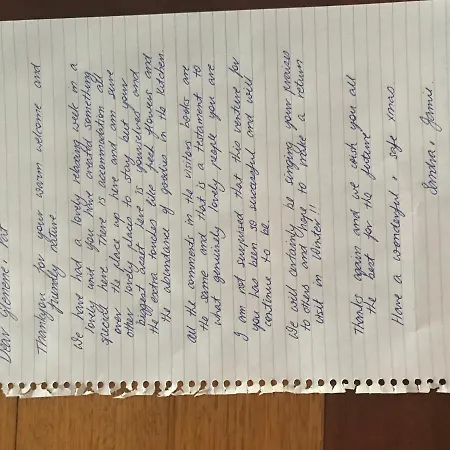 Dear Glenene, Pat
Thankyou for your warm welcome and
friendly advice
We have had a lovely relaxing week in a
lovely unit you have created something
special here. There is accommodation all
over the place up here and am sure
other lovely places to stay but your
biggest asset here is yourselves and
the extra touches like fresh flowers and
the abundance of goodies in the kitchen.
All the comments in the visitors books are
the same and that is a testament to
what genuinely lovely people you are
I am not surprised that this venture for
you has been so successful and will
continue to be.
We will certainly be singing your praises
to others and hope to make a return
visit in Winter!!
Thanks again and we wish you all
the best for the future
Have a wonderful & safe xmas
Sandra & Jamie.